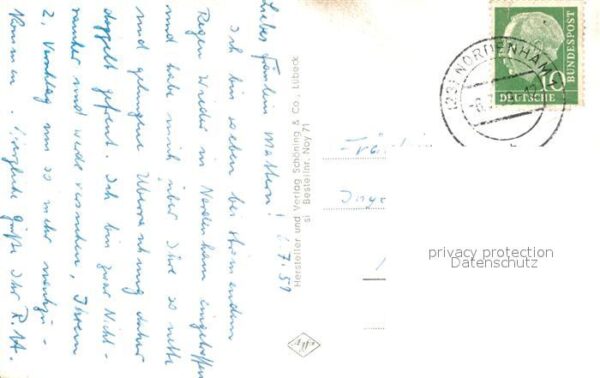 6.7.59
Liebes Fräulein
Ich bin soeben bei strömendem
Regen wieder in Nordenham eingetroffen
und habe mich über Ihre so nette
und gelungene Überraschung daher
doppelt gefreut. Ich bin zwar Nicht-
raucher und werde versuchen, Ihrem
2. Vorschlag um so mehr nachzu-
kommen. Herzliche Grüße Ihr R.
Hersteller und Verlag Schöning & Co., Lübeck
si Bestellnr. Noy 71
(23) NORDENHAM
10
DEUTSCHE
BUNDESPOST
privacy protection
Datenschutz